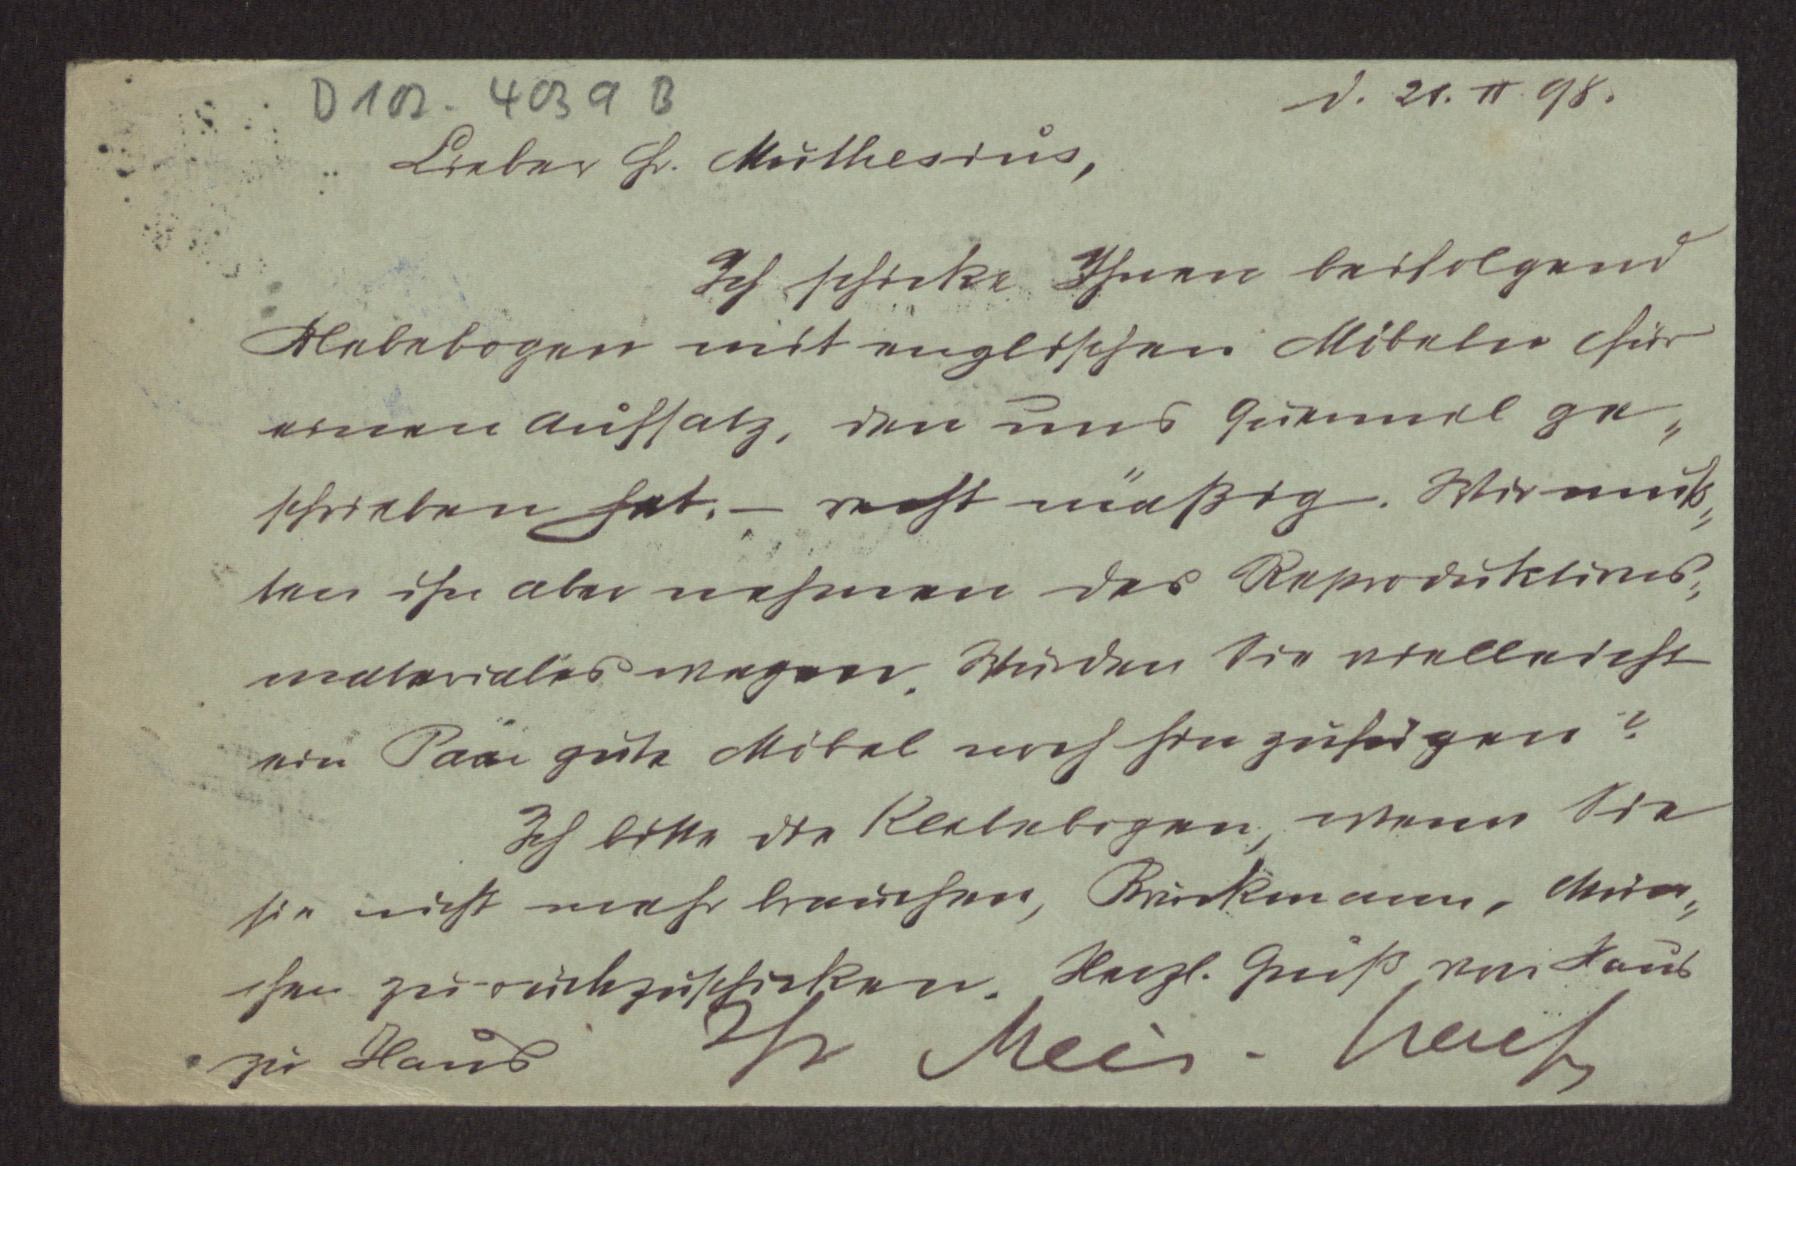 D 102 - 4039 B
d. 21. II 98.
Lieber Hr. Muthesius,
Ich schicke Ihnen beifolgend
Klebebogen mit englischen Möbeln für
einen Aufsatz, den uns Quennel ge„
schrieben hat. – recht mäßig. Wir muß„
ten ihn aber nehmen des Reproduktions„
materiales wegen. Würden Sie vielleicht
ein Paar gute Möbel noch hinzufügen?
Ich bitte die Klebebogen, wenn Sie
sie nicht mehr brauchen, Bruckmann, Mün„
chen zurückzuschicken. Herzl. Gruß von Haus
zu Haus Ihr Meier-Graefe